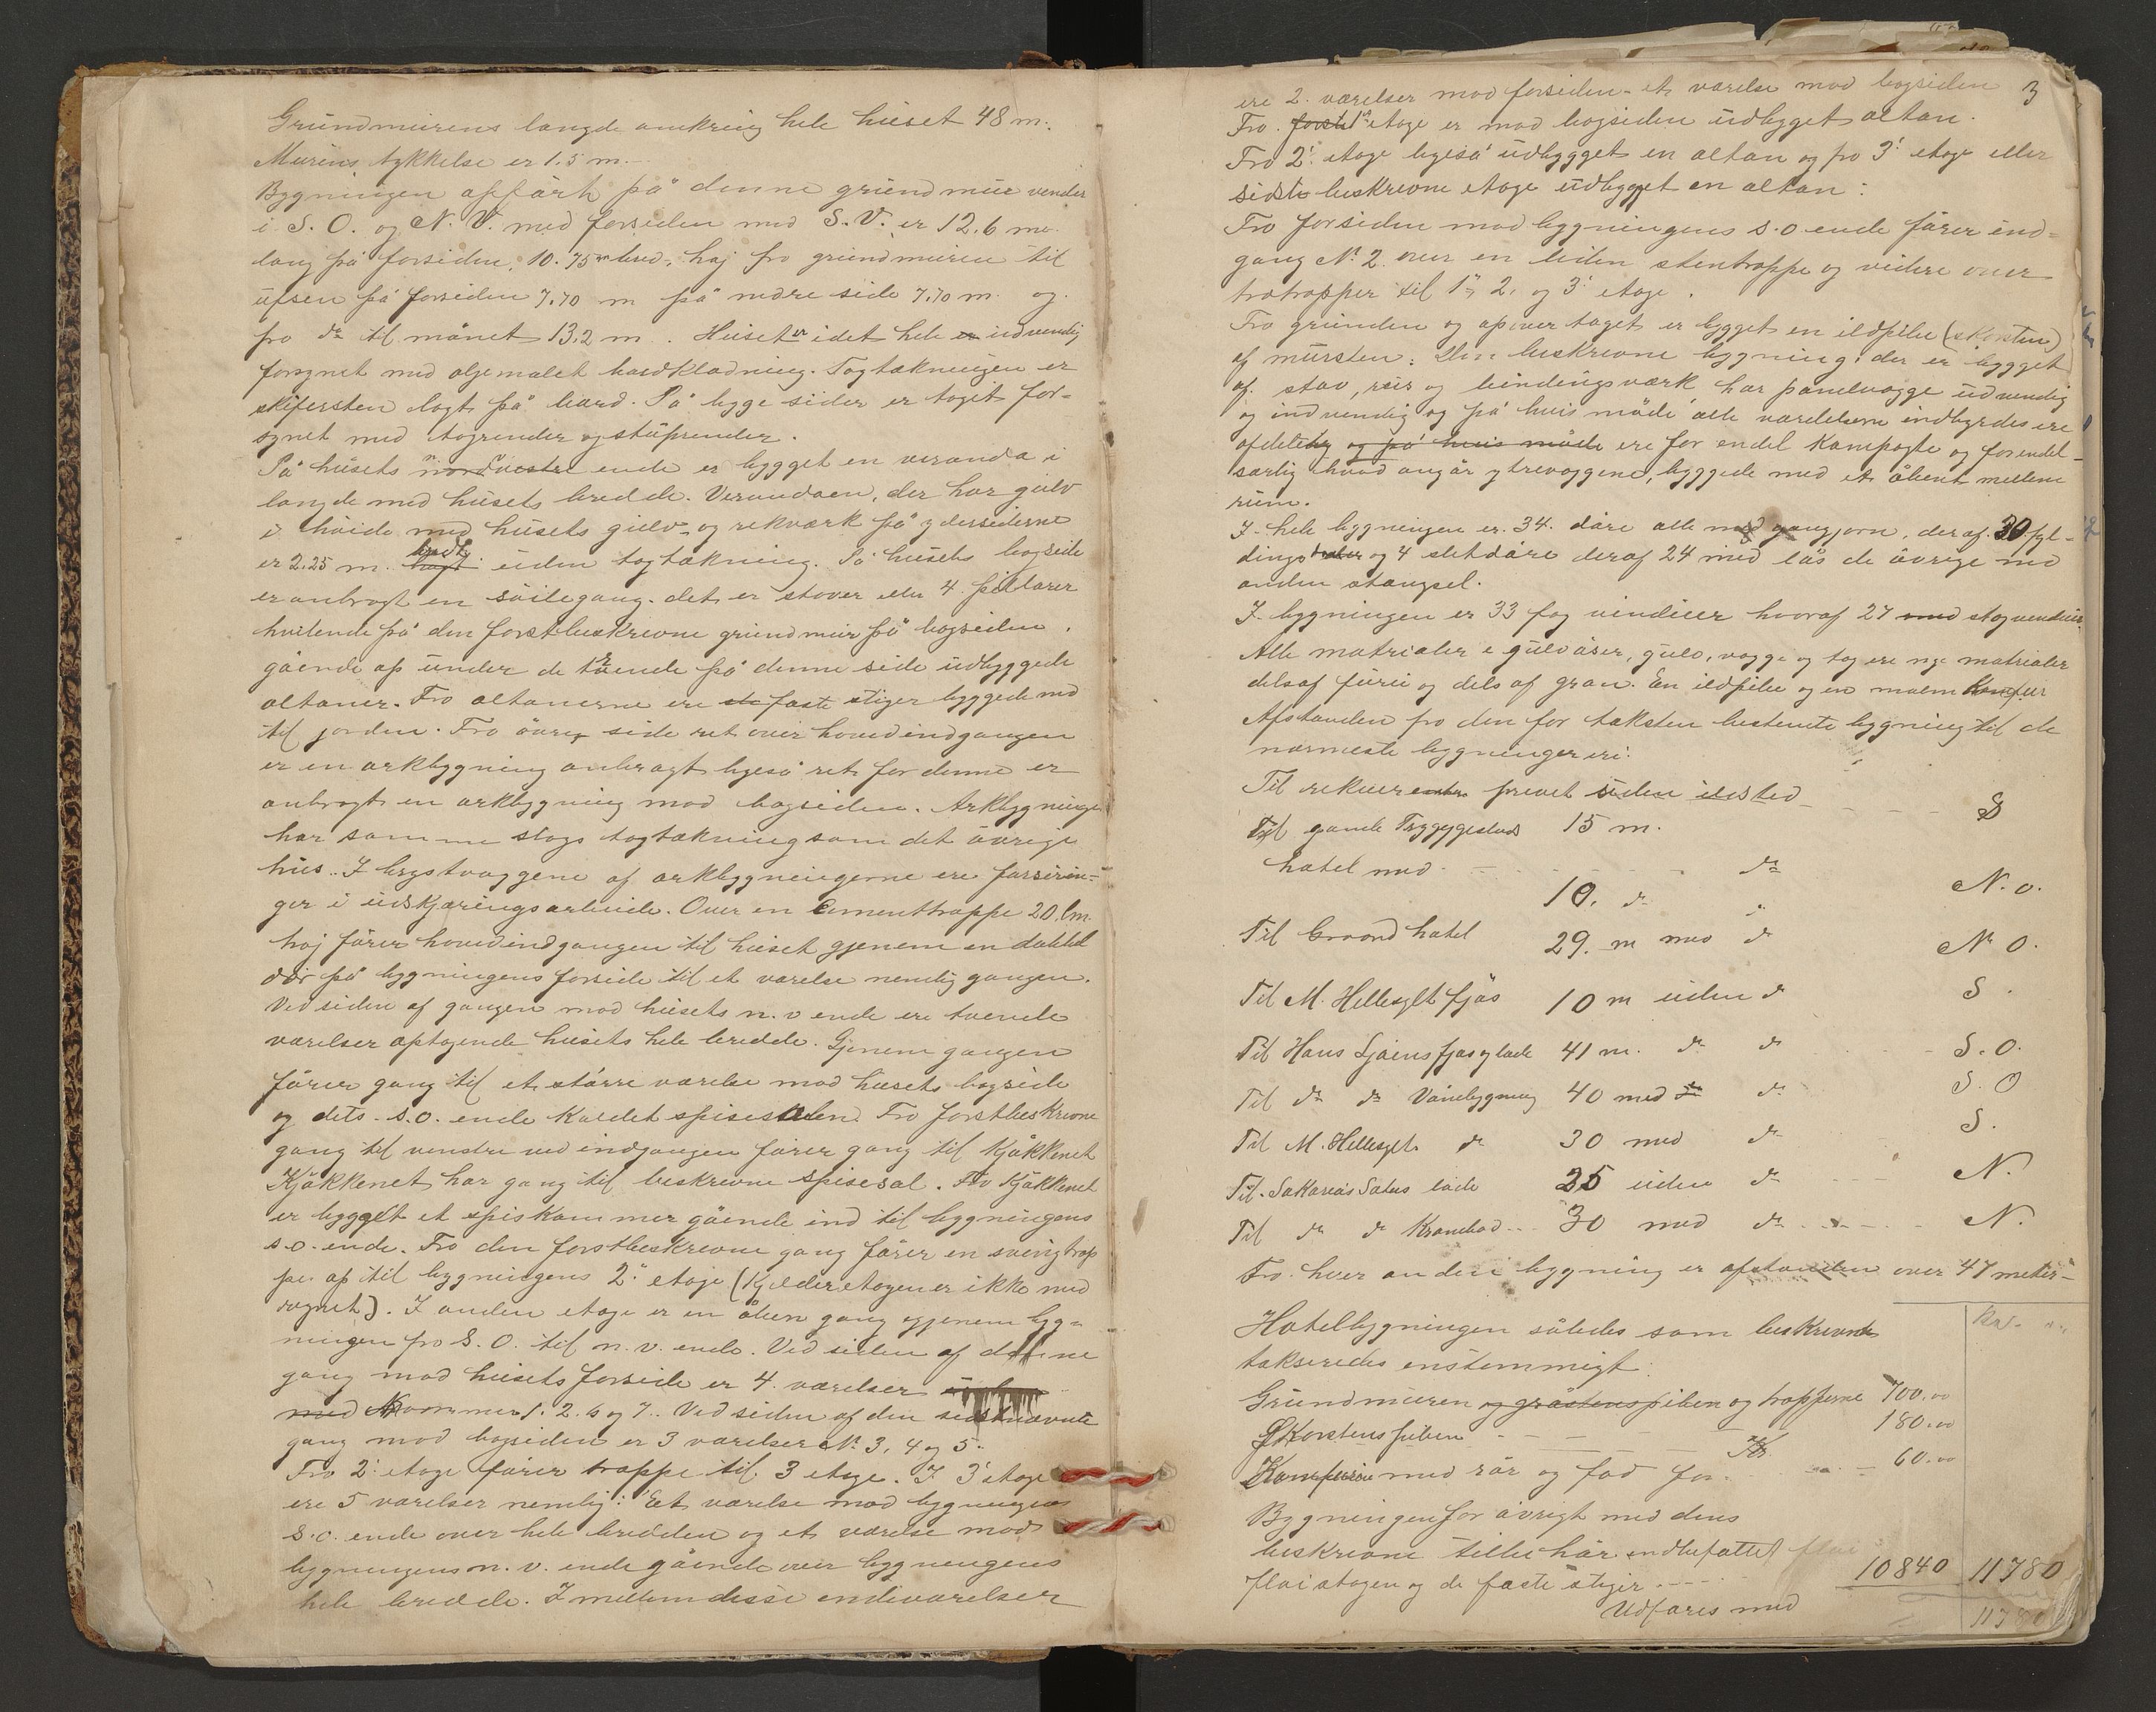 Grundmurens længde omkring hele huset 48 m.
Murens tykkelse er 1.5 m.
Bygningen opført på denne grundmur vender
i S. O. og N. V. med forsiden mod S. V. er 12.6 m.
lang på forsiden, 10.75 m bred, høj fra grundmuren til
ufsen på forsiden 7.70 m på nedre side 7.70 m. og
fra do til mønet 13.2 m. Huset er i det hele er udvendig
forsynet med oljemalet bordklædning. Tagtækningen er
skifersten lagt på bord. På begge sider er taget for-
synet med tagrender og støprender.
På husets nordvestre ende er bygget en veranda i
længde med husets bredde. Verandaen, der har gulv
i høide med husets gulv og rekværk på ydersiderne
er 2.25 m. bredt uden tagtækning. På husets bagside
er anbragt en søilegang. det er stover eller 4 pillarer
hvilende på den førstbeskrevne grundmur på bagsiden,
gående op under de tvende på denne side udbyggede
altaner. Fra altanerne ere faste stiger byggede ned
til jorden. Fra øvre side ret over hovedindgangen
er en arkbygning anbragt ligeså ret for denne er
anbragt en arkbygning mod bagsiden. Arkbygningen
har samme slags tagtækning som det øvrige
hus. I brystvæggene af arkbygningerne ere forsirin-
ger i udskjæringsarbeide. Over en Cementtrappe 20 Cm.
høj fører hovedindgangen til huset gjenem en dobbel
dør på bygningens forside til et værelse nemlig gangen.
Ved siden af gangen mod husets n. v ende ere tvende
værelser optagende husets hele bredde. Gjenem gangen
fører gang til et større værelse mod husets bagside
og dets s.o. ende kaldet spisesalen. Fra førstbeskrevne
gang til venstre ved indgangen fører gang til kjøkkenet
Kjøkkenet har gang til beskrevne spisesal. Fra Kjøkkenet
er bygget et spiskammer gående ind til bygningens
s.o. ende. Fra den førstbeskrevne gang fører en svingtrap
pe op til bygningens 2. etage (Kjelderetagen er ikke med
regnet). I anden etage er en åben gang gjenem byg-
ningen fra S. O. til n. v. ende. Ved siden af denne
gang mod husets forside er 4. værelser
med Nummer 1. 2. 6 og 7. Ved siden af den sidstnævnte
gang mod bagsiden er 3 værelser N. 3, 4 og 5.
Fra 2. etage fører trappe til 3 etage. I 3' etage
ere 5 værelser nemlig: Et værelse mod bygningens
S.O. ende over hele bredden og et værelse mod
bygningens n. v. ende gående over bygningens
hele bredde. Imellem disse endeværelser
3
ere 2. værelser mod forsiden et værelse mod bagsiden
Fra første 1' etage er mod bagsiden udbygget altan.
Fra 2' etage ligeså udbygget en altan og fra 3' etage eller
sidste beskrevne etage udbygget en altan:
Fra forsiden mod bygningens s.o ende fører ind-
gang N. 2. over en liden stentrappe og videre over
trætrapper til 1', 2. og 3' etage.
Fra grunden og op over taget er bygget en ildpibe (skorsten)
af mursten. Den beskrevne bygning, der er bygget
af stav, reis og bindingsværk har panelvægge udvendig
og indvendig og på hvis måde alle værelserne indbyrdes ere
afdelte og på hvis måde ere for endel kompagte og for endel
særlig hvad angår ytrevæggene, byggede med et åbent mellem
rum.
I hele bygningen er 34. døre alle med gangjern, deraf 30 fyl-
dings og 4 sletdøre deraf 24 med lås de øvrige med
anden stængsel.
I bygningen er 33 fag vinduer hvoraf 27 med stagvinduer.
Alle matrialer e gulvåser, gulv, vægge og tag ere nye matrialer
dels af furu og dels af gran. En ildpibe og en malm Komfur
Afstanden fra den for taksten bestemte bygning til de
nærmeste bygninger ere:
Til prevet uden ildsted S
Til gamle 15 m.
hotel med 10. do do N. o.
Til Grand hotel 29. m med do N O.
Til M. Hellesylt fjøs 10 m uden do S.
Til Hans Ljøens fjøs og lade 41 m. do do S. O.
Til do do Vånebygning 40 med do S. O
Til M. Hellesylt do 30 med do S.
Til Sakarias Sætres lade 25 uden do N.
Til do do Krambod 30 med do N.
Fra hver anden bygning er afstanden over 47 meter
Hotelbygningen således som beskrevet
takseredes enstemmigt:
Kr.
Grundmuren og gråstenspiben og trapperne 700.00
Skorstenspiben 180.00
Komfuren med rør og fad for Kr. 60.00
Bygningen for øvrigt med dens
beskrevne tilbehør indbefattet
fløistagen og de faste stiger 10840 11780
Udføres med 11780